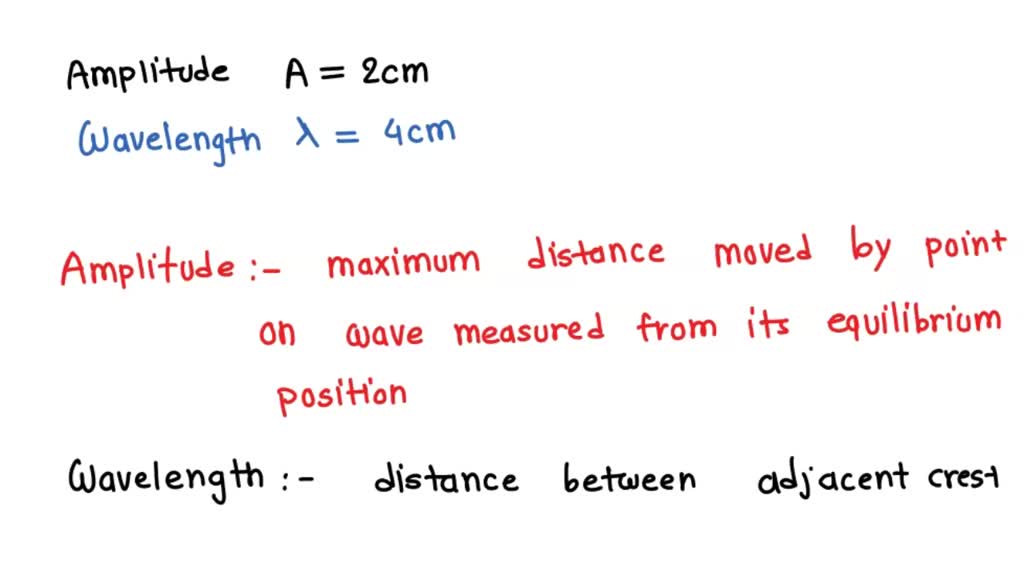 Amplitude A = 2cm
Wavelength λ = 4cm
Amplitude :- maximum distance moved by point
on wave measured from its equilibrium
position
Wavelength :- distance between adjacent crest